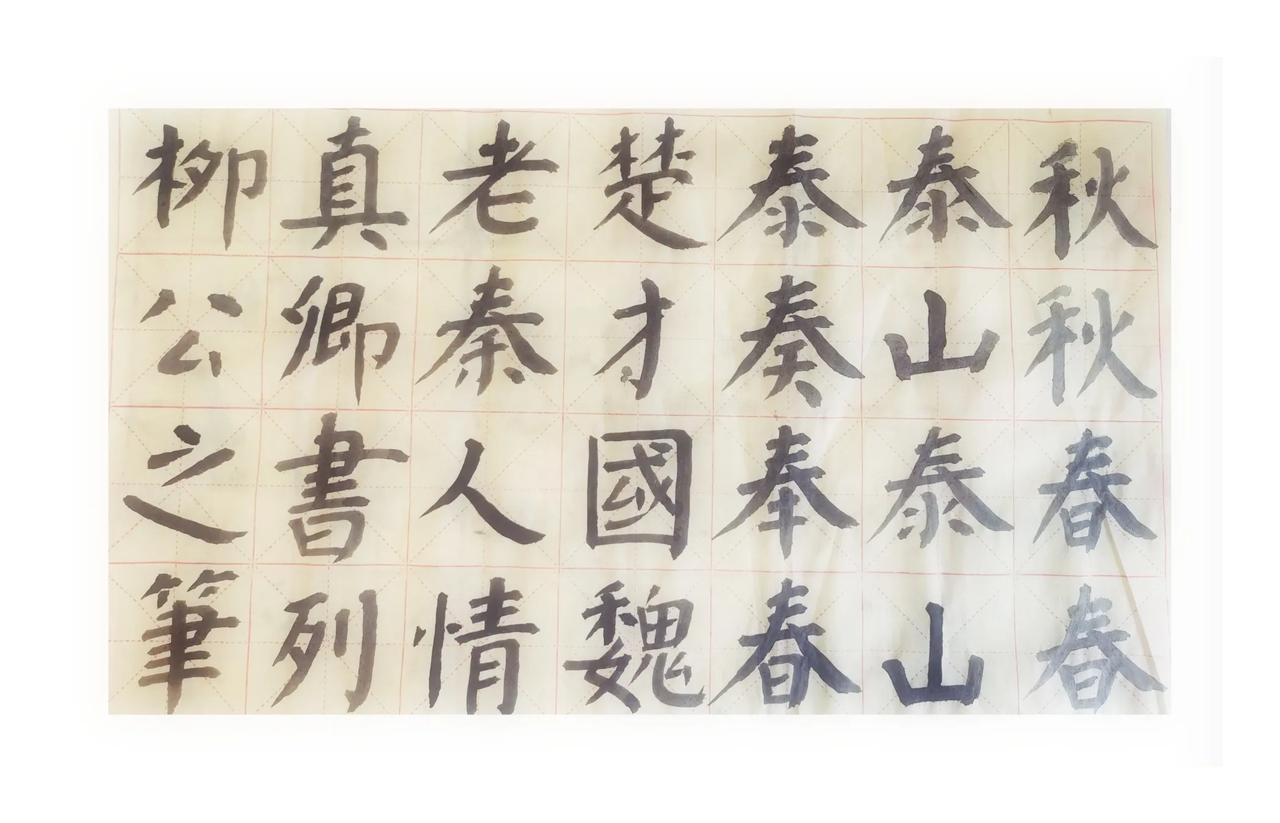 秋秋春春
泰山泰山
泰奏奉春
楚才國魏
老秦人情
真卿書列
柳公之筆